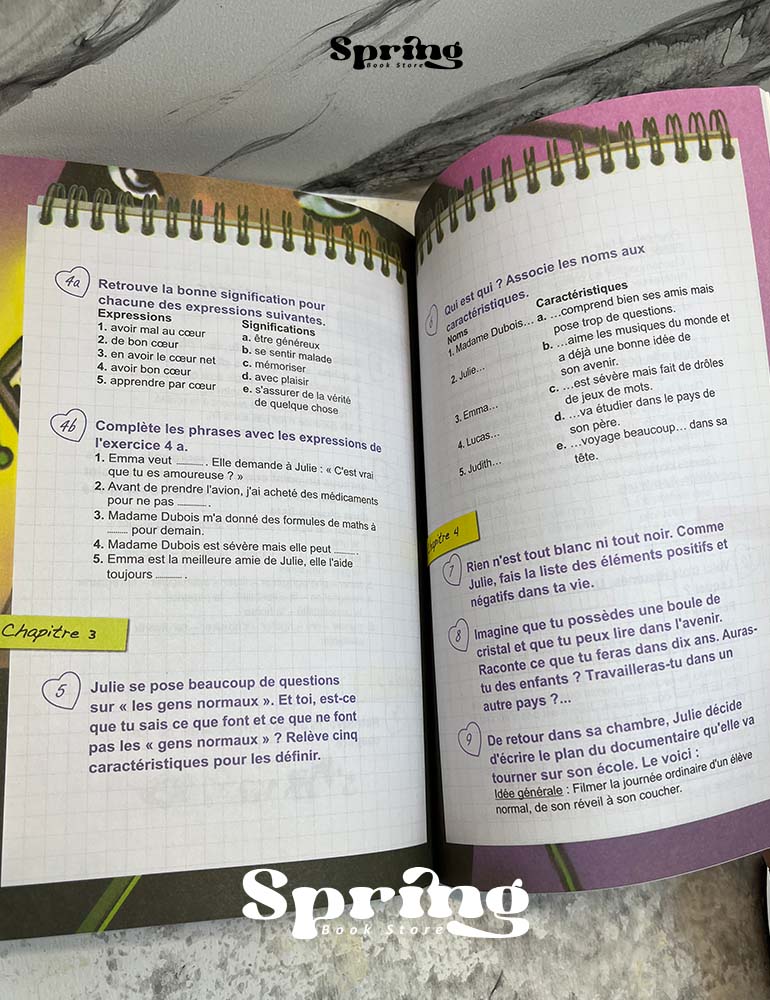 Spring
Book Store
4a
Retrouve la bonne signification pour
chacune des expressions suivantes.
Expressions
1. avoir mal au cœur
2. de bon cœur
3. en avoir le cœur net
4. avoir bon cœur
5. apprendre par cœur
Significations
a. être généreux
b. se sentir malade
c. mémoriser
d. avec plaisir
e. s'assurer de la vérité
de quelque chose
4b
Complète les phrases avec les expressions de
l'exercice 4 a.
1. Emma veut ........ . Elle demande à Julie : « C'est vrai
que tu es amoureuse ? »
2. Avant de prendre l'avion, j'ai acheté des médicaments
pour ne pas ........ .
3. Madame Dubois m'a donné des formules de maths à
........ pour demain.
4. Madame Dubois est sévère mais elle peut ........ .
5. Emma est la meilleure amie de Julie, elle l'aide
toujours ........ .
Chapitre 3
5
Julie se pose beaucoup de questions
sur « les gens normaux ». Et toi, est-ce
que tu sais ce que font et ce que ne font
pas les « gens normaux » ? Relève cinq
caractéristiques pour les définir.
6
Qui est qui ? Associe les noms aux
caractéristiques.
Noms
1. Madame Dubois…
2. Julie…
3. Emma…
4. Lucas…
5. Judith…
Caractéristiques
a. …comprend bien ses amis mais
pose trop de questions.
b. …aime les musiques du monde et
a déjà une bonne idée de
son avenir.
c. …est sévère mais fait de drôles
de jeux de mots.
d. …va étudier dans le pays de
son père.
e. …voyage beaucoup… dans sa
tête.
Chapitre 4
7
Rien n'est tout blanc ni tout noir. Comme
Julie, fais la liste des éléments positifs et
négatifs dans ta vie.
8
Imagine que tu possèdes une boule de
cristal et que tu peux lire dans l'avenir.
Raconte ce que tu feras dans dix ans. Auras-
tu des enfants ? Travailleras-tu dans un
autre pays ?...
9
De retour dans sa chambre, Julie décide
d'écrire le plan du documentaire qu'elle va
tourner sur son école. Le voici :
Idée générale : Filmer la journée ordinaire d'un élève
normal, de son réveil à son coucher.
Spring
Book Store